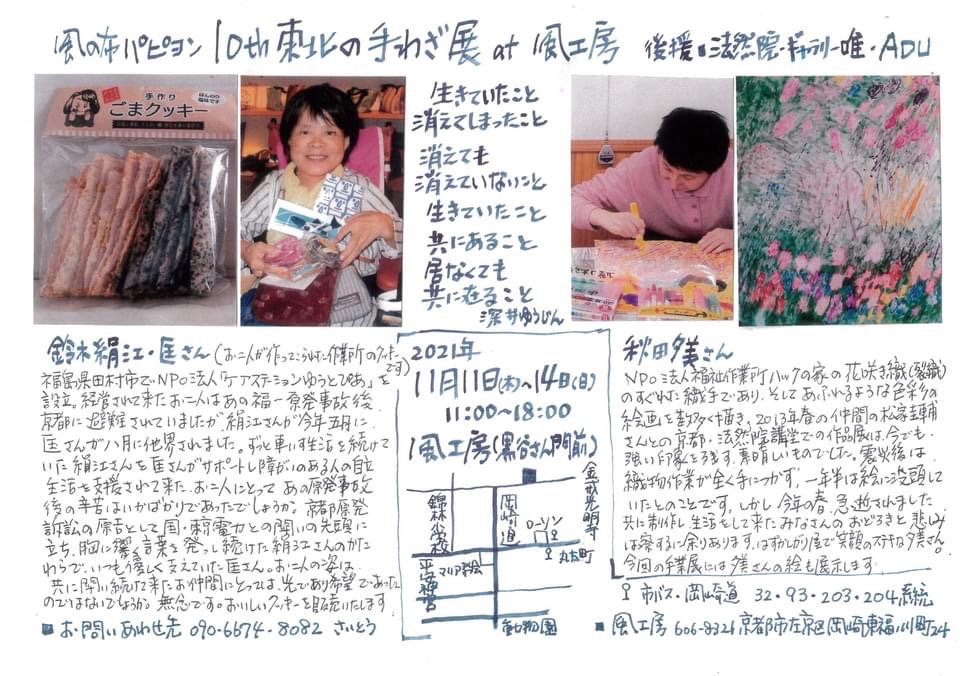 風の布パピヨン 10th 東北の手わざ展 at 風工房 後援■法然院・ギャラリー唯・ADU
手作り
ごまクッキー
生きていたこと
消えてしまったこと
消えても
消えていないこと
生きていたこと
共にあること
居なくても
共に在ること
深井ゆうじん
鈴木絹江・匡さん(お二人が作ってこられた作業所のクッキーです)
福島県田村市でNPO法人「ケアステーションゆうとぴあ」を
設立。経営されて来たお二人はあの福一原発事故後、
京都に避難されていましたが絹江さんが今年五月に
匡さんが八月に他界されました。ずっと車いす生活を続けて
いた絹江さんを匡さんがサポートし障がいのある人の自立
生活を支援されて来た。お二人にとって あの原発事故
後の辛苦はいかばかりであったでしょうか。京都原発
訴訟の原告として国・東京電力との闘いの先頭に
立ち、胸に響く言葉を発っし続けた絹江さんのかた
わらで、いつも優しく支えていた匡さん。お二人の姿は
共に闘い続けて来たお仲間にとっては、光であり希望であった
のではないでしょうか。無念です。おいしいクッキーを販売いたします
■お問いあわせ先 090-6674-8082 さいとう
2021年
11月11日(木)〜14日(日)
11:00〜18:00
風工房(黒谷さん門前)
金戒光明寺
錦林小学校
岡崎道
ローソン
丸太町
マリア教会
平安神宮
動物園
秋田夕美さん
NPO法人福祉作業所ハックの家の花咲き織(裂織)
のすぐれた織手であり、そしてあふれるような色彩の
絵画を数多く描き、2013年春の仲間の松家圭輔
さんとの京都・法然院講堂での作品展は、今でも
強い印象を残す、素晴しいものでした。震災後は
織物作業が全く手につかず、一年半は絵に没頭して
いたとのことです。しかし今年の春、急逝されました
共に制作し生活をして来たみなさんのおどろきと悲しみ
は察するに余りあります。はずかしがり屋で笑顔のステキな夕美さん。
今回の手業展には夕美さんの絵も展示します
市バス・岡崎道 32・93・203・204系統
■風工房 606-8321 京都市左京区岡崎東福ノ川町24